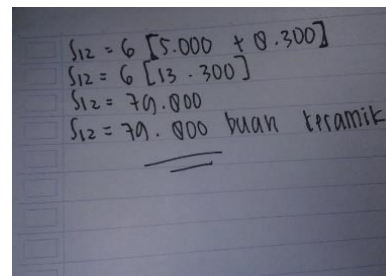 S12 = 6 [5.000 + 8.300]
S12 = 6 [13.300]
S12 = 79.800
S12 = 79.800 buah keramik